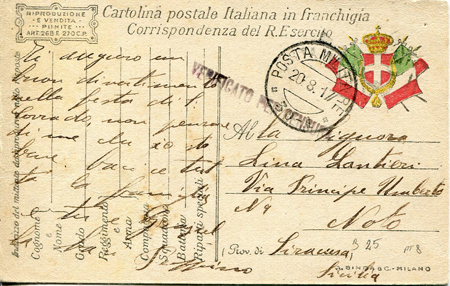 RIPRODUZIONE
E VENDITA
PUNITE
ART. 268 E 270 C.P.
Cartolina postale Italiana in franchigia
Corrispondenza del R. Esercito
POSTA MILITARE
20.8.17
VERIFICATO PER CENSURA
Ti auguro un
buon divertimento
nella festa di S.
Corrado, non pensare
di me che io sto
bene baci a tutta
la famiglia
Indirizzo del mittente
Cognome
e
Nome
Grado
Reggimento
e
Arma
Compagnia
Squadrone
Batteria
Riparti speciali
Alla Signora
Lina Lantieri
Via Principe Umberto
Nº
Noto
Prov. di Siracusa
Sicilia
B 25
MILANO